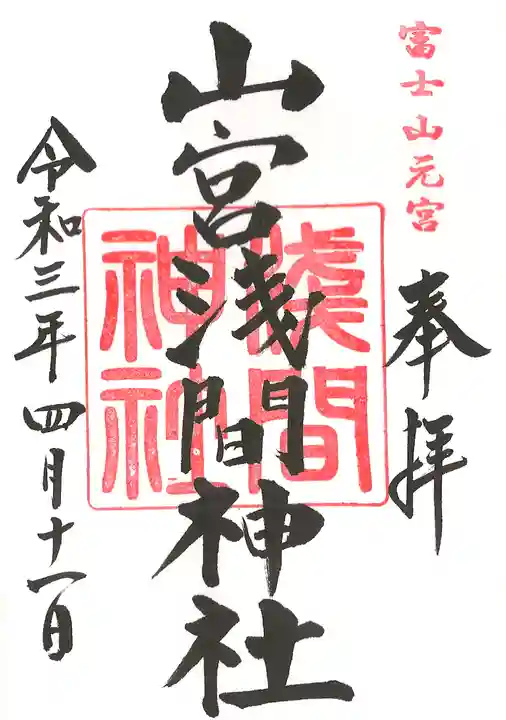 富士山元宮
奉拝
山宮浅間神社
浅間
神社
令和三年四月十一日